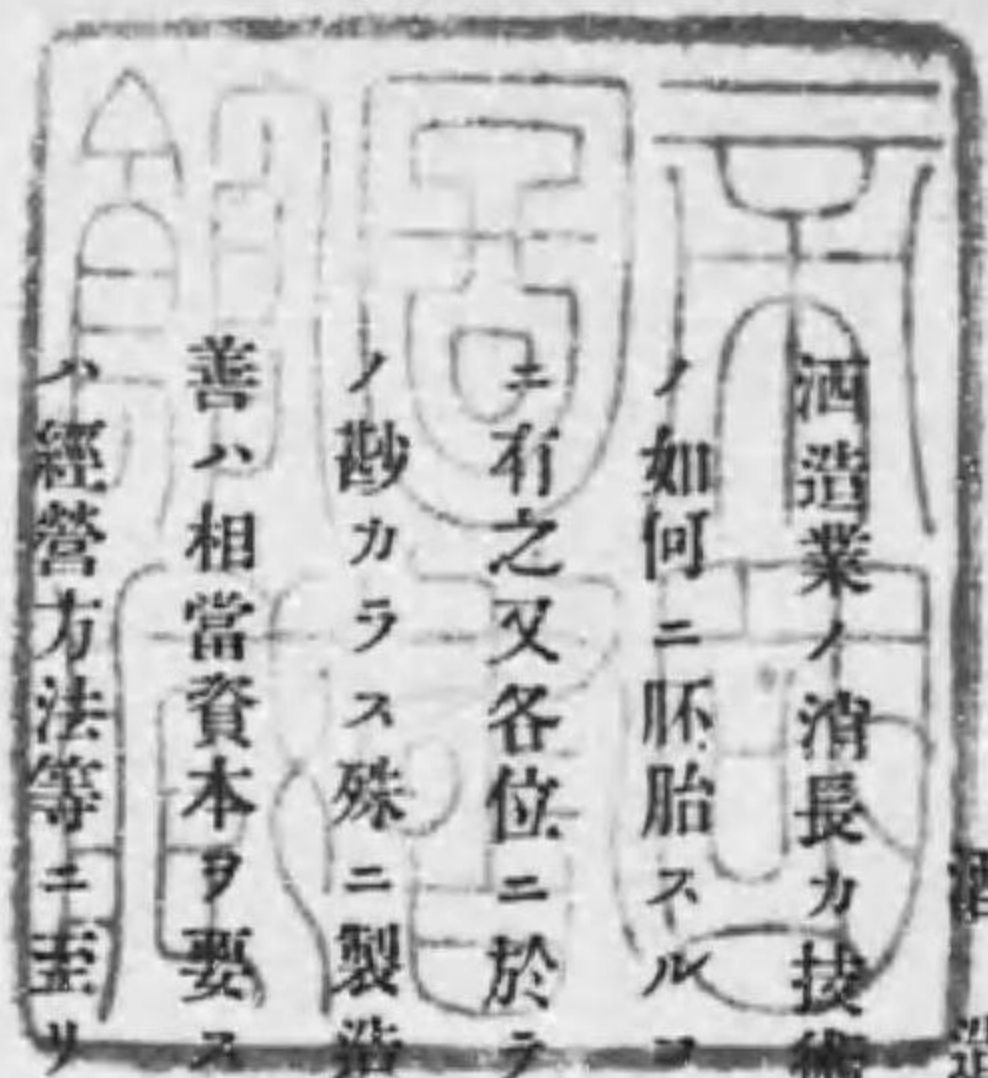 酒造
酒造業ノ消長カ技術
ノ如何ニ胚胎スルコ
ニ有之又各位ニ於テ
ノ尠カラス殊ニ製造
善ハ相當資本ヲ要ス
ハ經營方法等ニ至リ